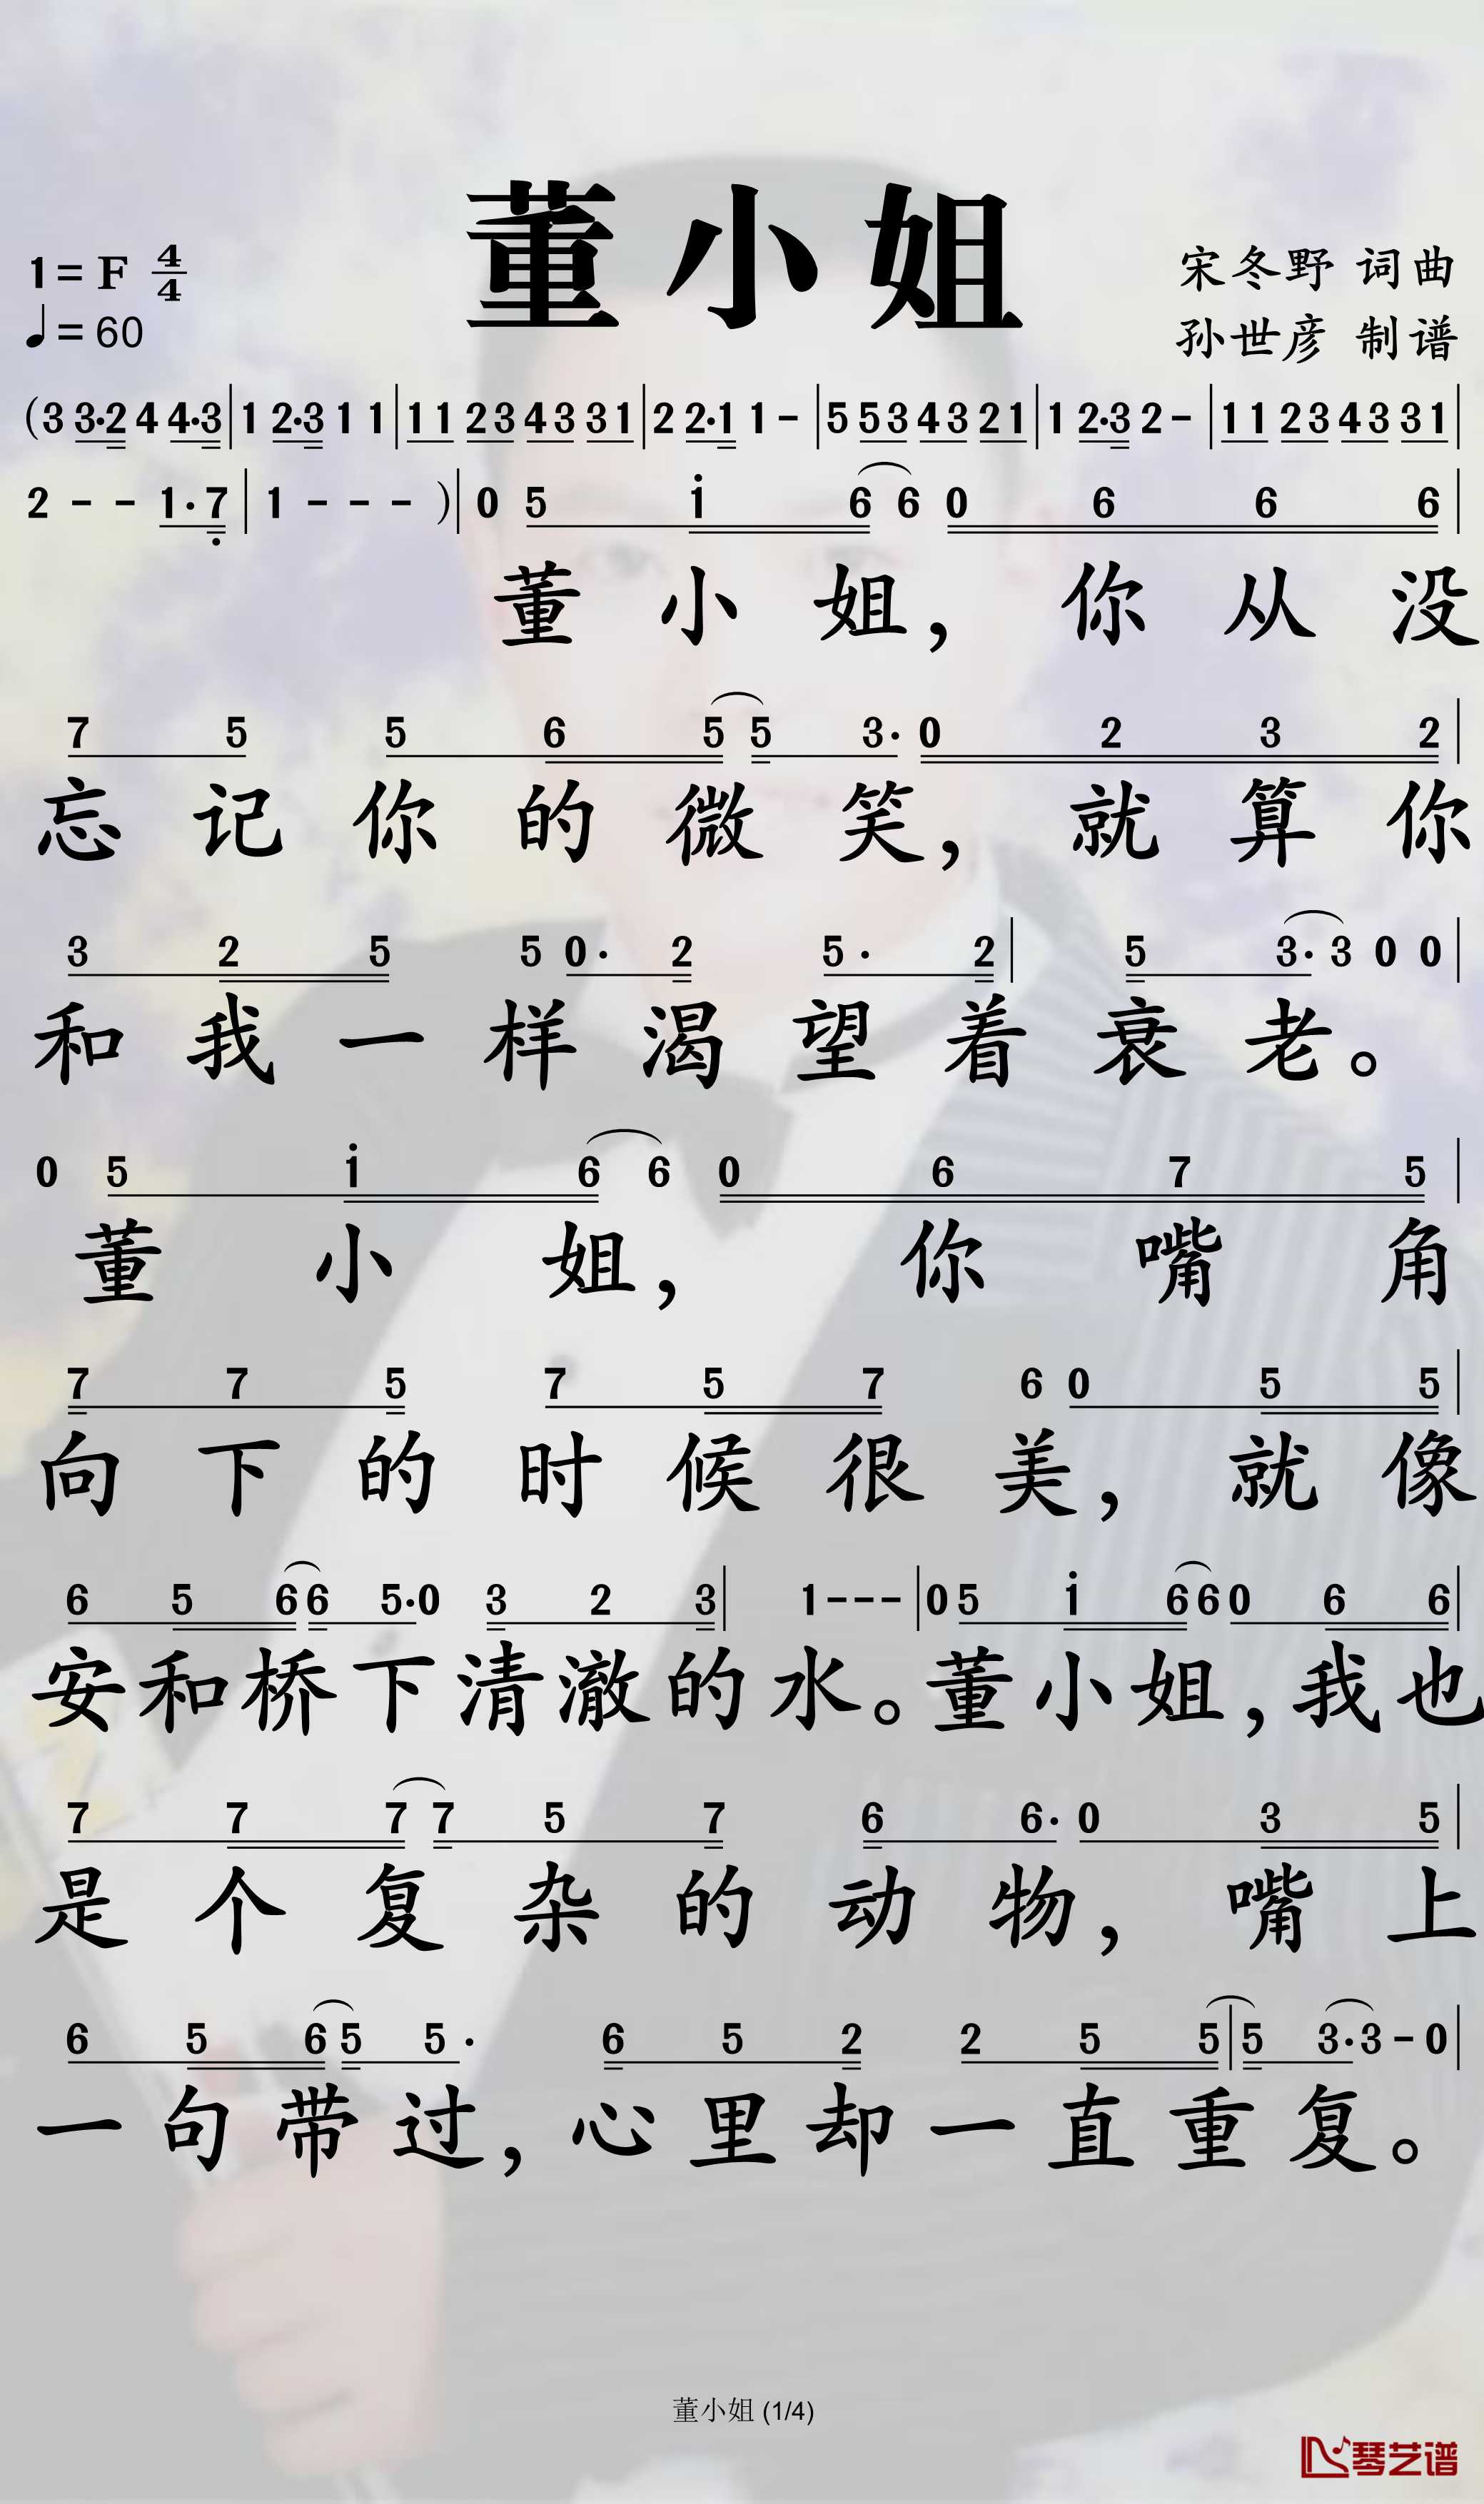 董小姐
1=F 4/4
♩=60
宋冬野 词曲
孙世彦 制谱
(3 3·2 4 4·3|1 2·3 1 1|1 1 2 3 4 3 3 1|2 2·1 1 -|5 5 3 4 3 2 1|1 2·3 2 -|1 1 2 3 4 3 3 1|
2 - - 1·7̣|1 - - -)|0 5 1̇ 6 6 0 6 6 6|
董小姐，你从没
7 5 5 6 5 5 3·0 2 3 2|
忘记你的微笑，就算你
3 2 5 5 0·2 5·2|5 3·3 0 0|
和我一样渴望着衰老。
0 5 1̇ 6 6 0 6 7 5|
董小姐，你嘴角
7 7 5 7 5 7 6 0 5 5|
向下的时候很美，就像
6 5 6 6 5·0 3 2 3|1 - - -|0 5 1̇ 6 6 0 6 6|
安和桥下清澈的水。董小姐，我也
7 7 7 7 5 7 6 6·0 3 5|
是个复杂的动物，嘴上
6 5 6 5 5·6 5 2 2 5 5|5 3·3 - 0|
一句带过，心里却一直重复。
董小姐 (1/4)
琴艺谱